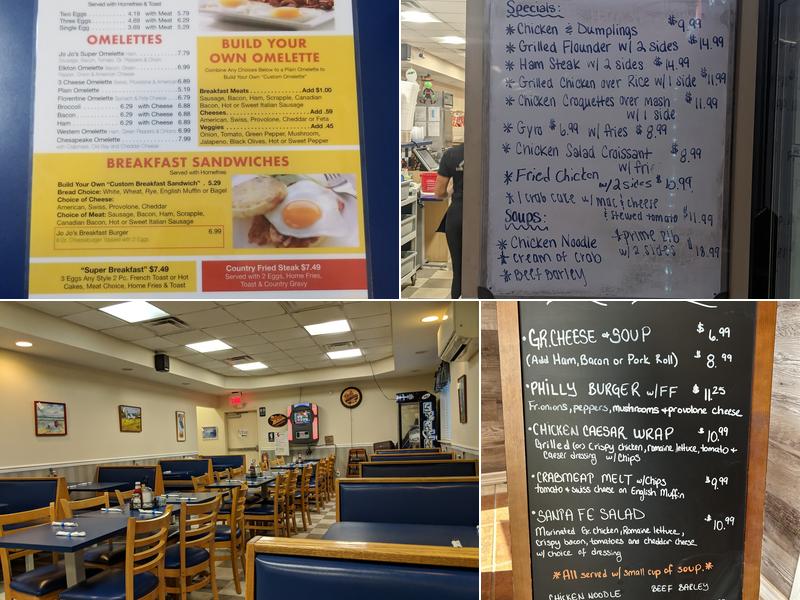 Served with Homefries & Toast
Two Eggs 4.19 with Meat 5.79
Three Eggs 4.69 with Meat 6.29
Single Egg 3.69 with Meat 5.29
OMELETTES
Jo Jo's Super Omelette Ham 7.79
Sausage, Bacon, Tomato, Gr. Peppers & Onion
Elkton Omelette Bacon, Green 6.99
Pepper, Onion & American Cheese
3 Cheese Omelette Swiss, Provolone & American 6.89
Plain Omelette 5.19
Florentine Omelette Spinach & Feta Cheese 6.79
Broccoli 6.29 with Cheese 6.88
Bacon 6.29 with Cheese 6.88
Ham 6.29 with Cheese 6.88
Western Omelette Ham, Green Peppers & Onions 6.99
Chesapeake Omelette 7.99
with Crabmeat, Old Bay and Cheddar Cheese
BUILD YOUR
OWN OMELETTE
Combine Any Choices Below to a Plain Omelette to
Build Your Own "Custom Omelette"
Breakfast Meats Add $1.00
Sausage, Bacon, Ham, Scrapple, Canadian
Bacon, Hot or Sweet Italian Sausage
Cheeses Add .59
American, Swiss, Provolone, Cheddar or Feta
Veggies Add .45
Onion, Tomato, Green Pepper, Mushroom,
Jalapeno, Black Olives, Hot or Sweet Pepper
BREAKFAST SANDWICHES
Served with Homefries
Build Your Own "Custom Breakfast Sandwich" . 5.29
Bread Choice: White, Wheat, Rye, English Muffin or Bagel
Choice of Cheese:
American, Swiss, Provolone, Cheddar
Choice of Meat: Sausage, Bacon, Ham, Scrapple,
Canadian Bacon, Hot or Sweet Italian Sausage
Jo Jo's Breakfast Burger 6.99
6 Oz. Cheeseburger Topped with 2 Eggs
"Super Breakfast" $7.49
3 Eggs Any Style 2 Pc. French Toast or Hot
Cakes, Meat Choice, Home Fries & Toast
Country Fried Steak $7.49
Served with 2 Eggs, Home Fries,
Toast & Country Gravy
Specials:
* Chicken & Dumplings $9.99
* Grilled Flounder w/ 2 sides $14.99
* Ham Steak w/ 2 sides $14.99
* Grilled Chicken over Rice w/ 1 side $11.99
* Chicken Croquettes over mash $11.99
w/ 1 side
* Gyro $6.99 w/ fries $8.99
* Chicken Salad Croissant $8.99
w/ fri
* Fried Chicken w/ 2 sides 10.99
1 Crab cake w/ mac & cheese
& stewed tomato $11.99
Soups:
* Chicken Noodle
* Cream of Crab
* Beef Barley
* prime rib
w/ 2 sides $18.99
• GR.CHEESE & SOUP $6.99
(Add Ham, Bacon or Pork Roll) $8.99
• PHILLY BURGER w/FF $11.25
Fr.onions, peppers, mushrooms & provolone cheese
• CHICKEN CAESAR WRAP $10.99
Grilled (or) Crispy chicken, romaine lettuce, tomato &
Caeser dressing w/Chips
• CRABMEAP MELT w/Chips $9.99
tomato & swiss cheese on English Muffin
• SANTA FE SALAD $10.99
Marinated Gr. chicken, Romaine lettuce,
crispy bacon, tomatoes and cheddar cheese
w/ choice of dressing
*All served w/ small cup of soup.*
CHICKEN NOODLE BEEF BARLEY